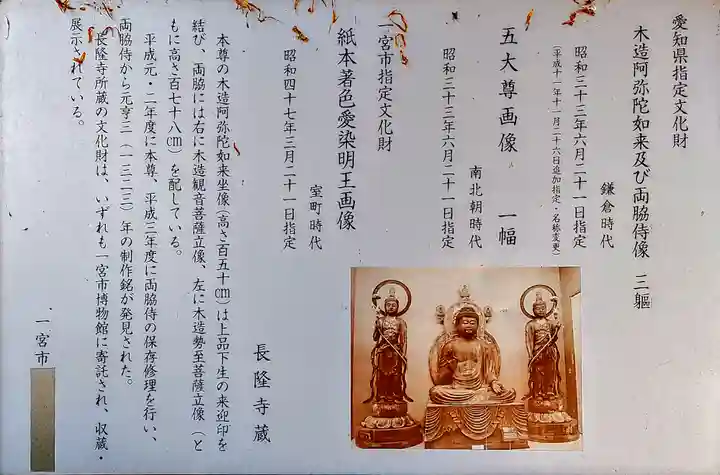 愛知県指定文化財
木造阿弥陀如来及び両脇侍像 三軀
鎌倉時代
昭和三十三年六月二十一日指定
(平成十二年十一月二十六日追加指定・名称変更)
五大尊画像 一幅
南北朝時代
昭和三十三年六月二十一日指定
一宮市指定文化財
紙本著色愛染明王画像
室町時代
昭和四十七年三月二十一日指定
長隆寺蔵
本尊の木造阿弥陀如来坐像(高さ百五十㎝)は上品下生の来迎印を
結び、両脇には右に木造観音菩薩立像、左に木造勢至菩薩立像(と
もに高さ百七十八㎝)を配している。
平成元・二年度に本尊、平成三年度に両脇侍の保存修理を行い、
両脇侍から元亨三(一三二三)年の制作銘が発見された。
長隆寺所蔵の文化財は、いずれも一宮市博物館に寄託され、収蔵・
展示されている。
一宮市